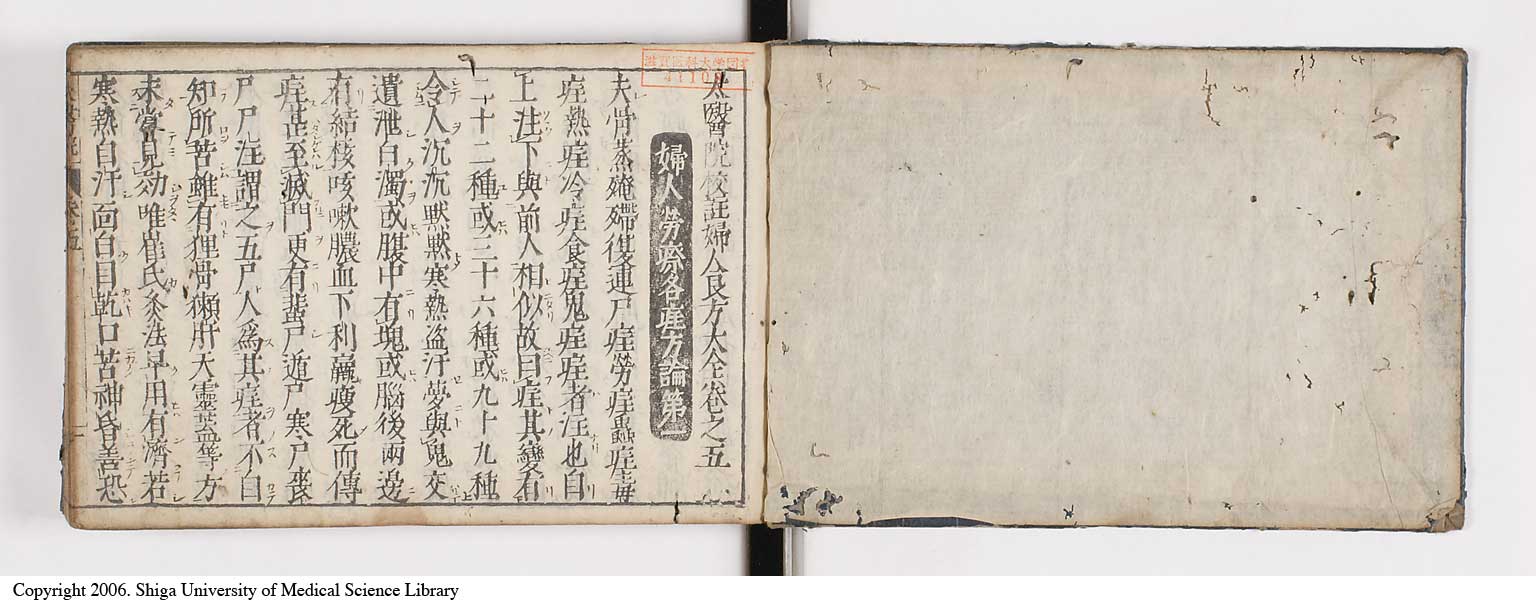 太醫院校註婦人良方大全卷之五
婦人勞瘵各疰方論第一
夫骨蒸殗殜復連尸疰勞疰蟲疰毒
疰熱疰冷疰食疰鬼疰疰者注也自
上注下與前人相似故曰疰其變有
二十二種或三十六種或九十九種
令人沉沉默默寒熱盗汗夢與鬼交
遺泄白濁或腹中有塊或腦後兩邊
有結核咳嗽膿血下利羸瘦死而傳
疰甚至滅門更有蜚尸遁尸寒尸喪
尸尸注謂之五尸人爲其疰者不自
知所苦雖有狸骨獺肝天靈蓋等方
未嘗見効唯崔氏灸法早用有濟若
寒熱自汗面白目乾口苦神昏善恐
卷五
滋賀医科大学図
41108
Copyright 2006. Shiga University of Medical Science Library